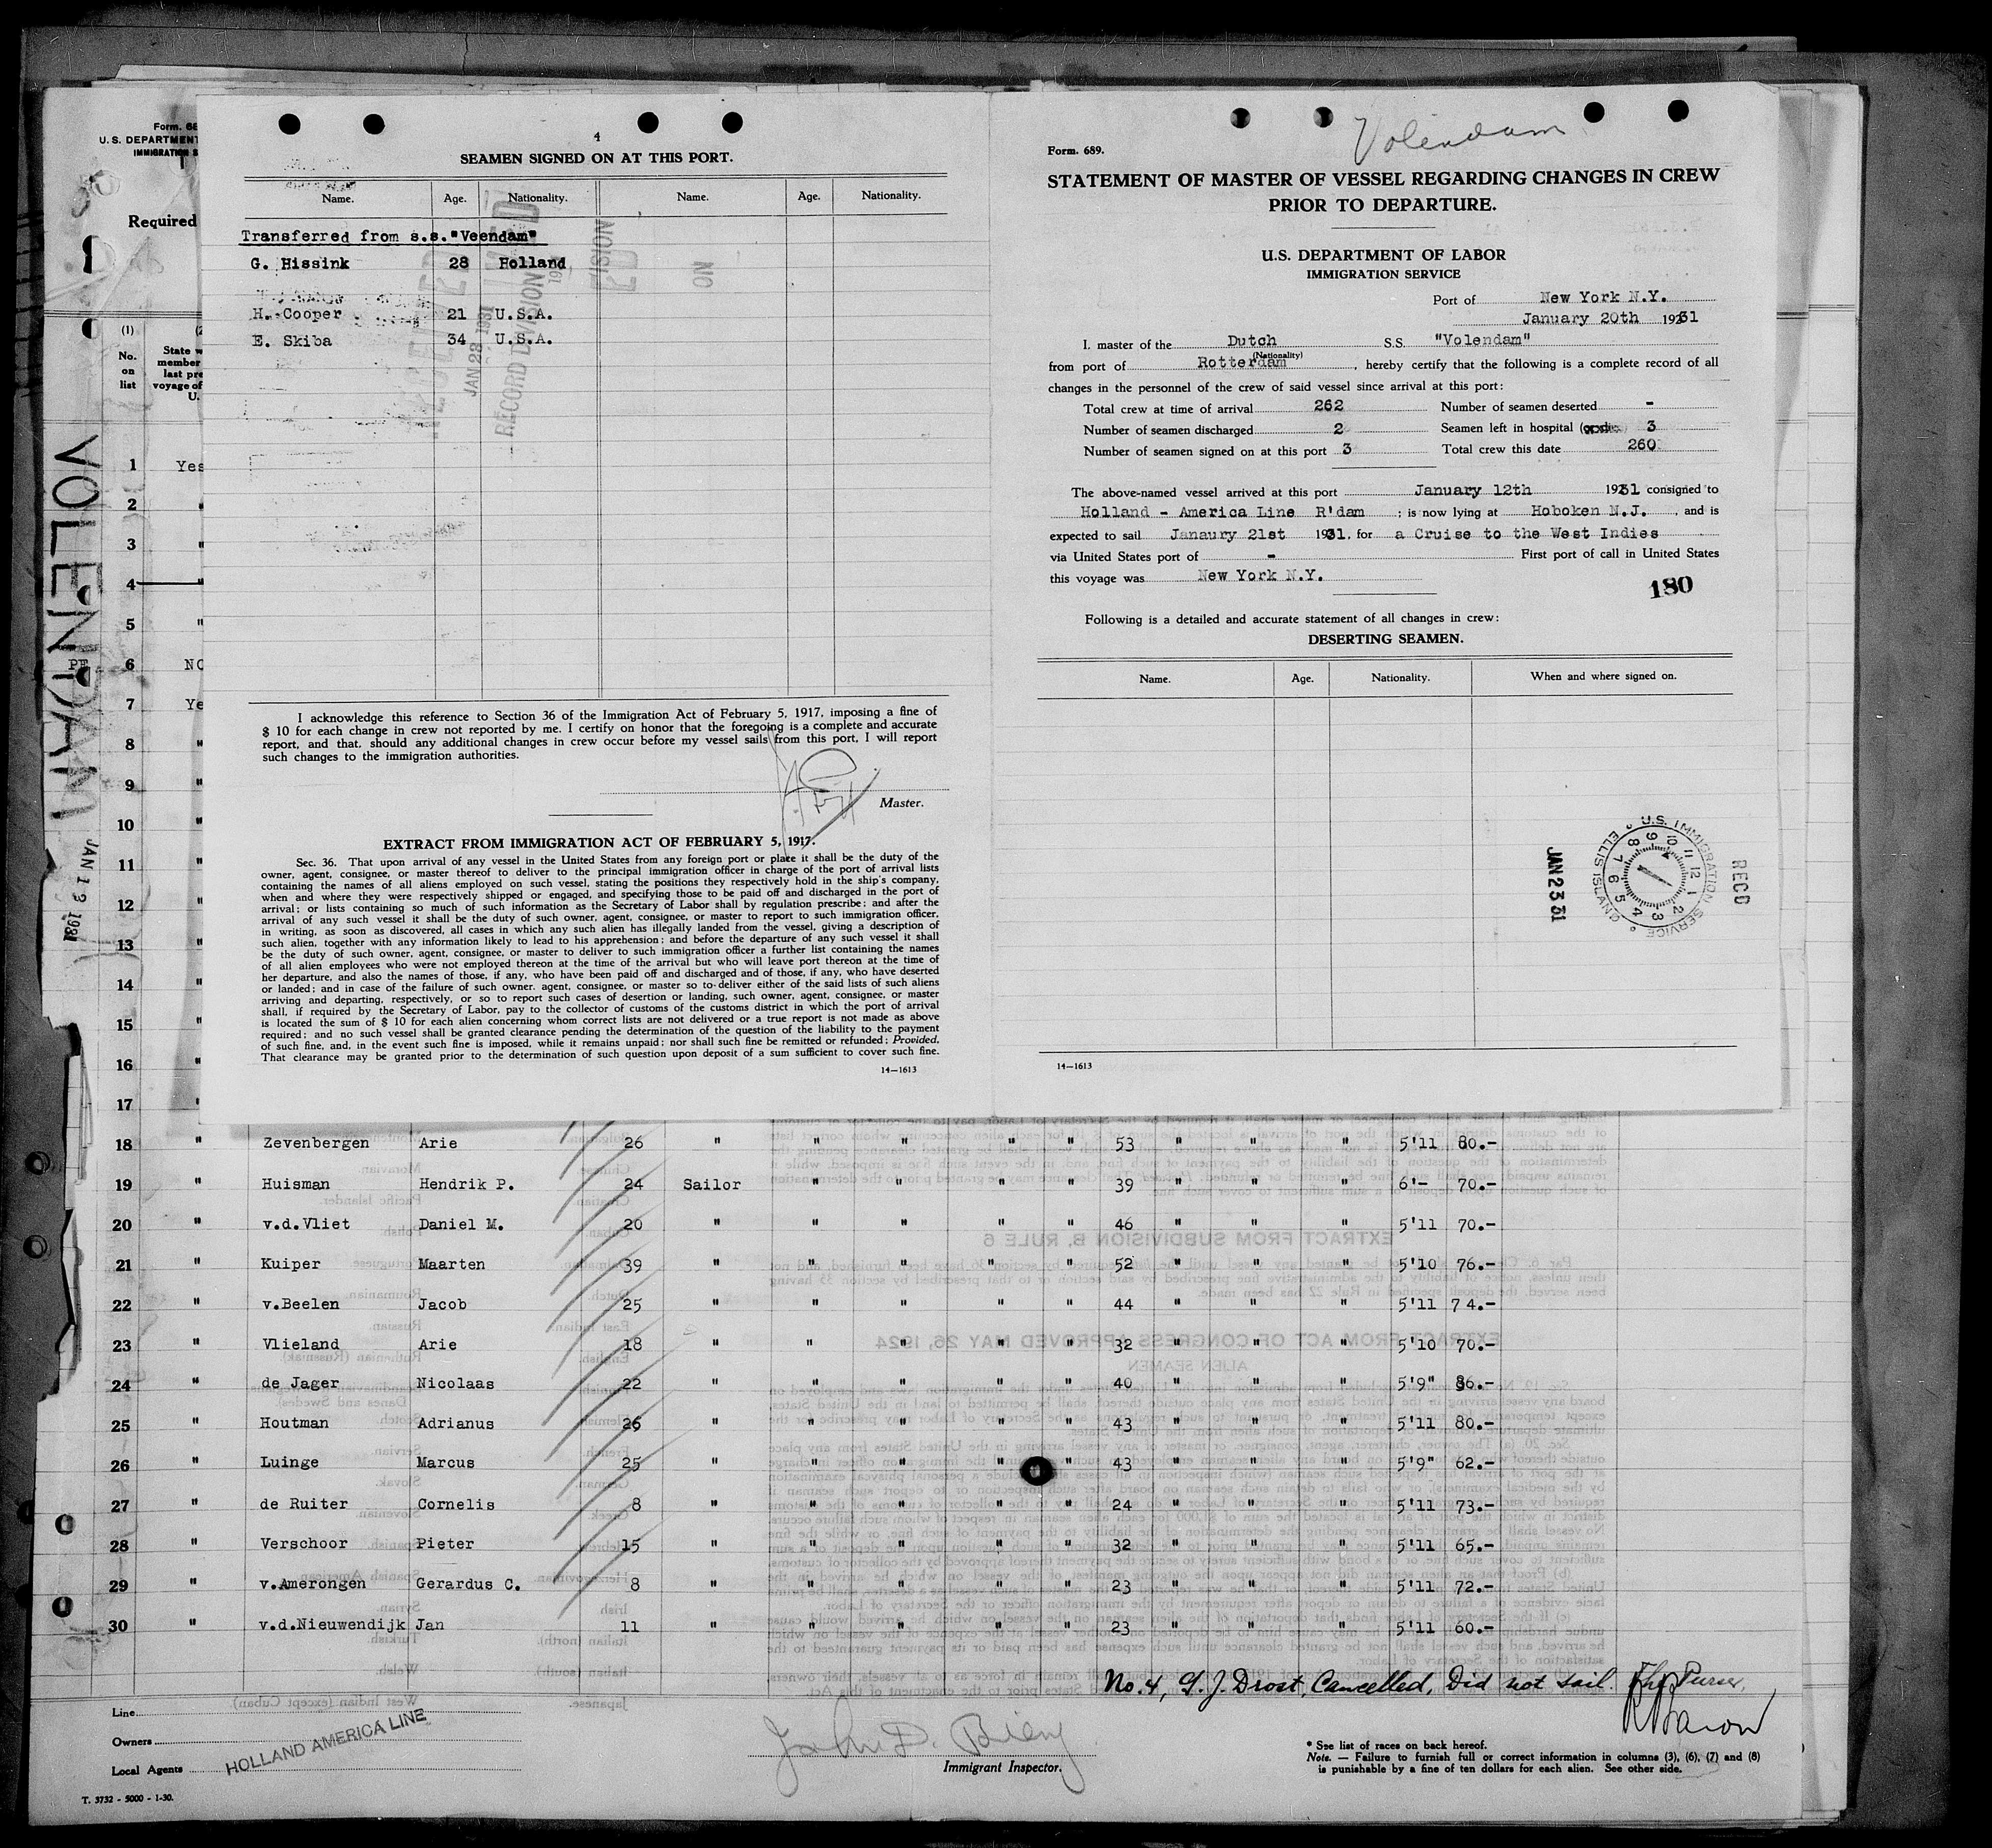 Form. 68
U. S. DEPARTMENT
IMMIGRATION S
Required
(1)
No.
on
list
State w
member
last pre
voyage of
U.
VOLENDAM
JAN 13 1931
1 Yes
2 "
3 "
4 "
5 "
6 NO
7 Ye
8 "
9 "
10 "
11 "
12 "
13 "
14 "
15 "
16 "
17 "
4
SEAMEN SIGNED ON AT THIS PORT.
Name. Age. Nationality. Name. Age. Nationality.
Transferred from s.s."Veendam"
G. Hissink 28 Holland
H. Cooper 21 U.S.A.
E. Skiba 34 U.S.A.
JAN 23 1931
RECORD DIVISION
I acknowledge this reference to Section 36 of the Immigration Act of February 5, 1917, imposing a fine of
$ 10 for each change in crew not reported by me. I certify on honor that the foregoing is a complete and accurate
report, and that, should any additional changes in crew occur before my vessel sails from this port, I will report
such changes to the immigration authorities.
Master.
EXTRACT FROM IMMIGRATION ACT OF FEBRUARY 5, 1917.
Sec. 36. That upon arrival of any vessel in the United States from any foreign port or place it shall be the duty of the
owner, agent, consignee, or master thereof to deliver to the principal immigration officer in charge of the port of arrival lists
containing the names of all aliens employed on such vessel, stating the positions they respectively hold in the ship's company,
when and where they were respectively shipped or engaged, and specifying those to be paid off and discharged in the port of
arrival; or lists containing so much of such information as the Secretary of Labor shall by regulation prescribe; and after the
arrival of any such vessel it shall be the duty of such owner, agent, consignee, or master to report to such immigration officer,
in writing, as soon as discovered, all cases in which any such alien has illegally landed from the vessel, giving a description of
such alien, together with any information likely to lead to his apprehension; and before the departure of any such vessel it shall
be the duty of such owner, agent, consignee, or master to deliver to such immigration officer a further list containing the names
of all alien employees who were not employed thereon at the time of the arrival but who will leave port thereon at the time of
her departure, and also the names of those, if any, who have been paid off and discharged and of those, if any, who have deserted
or landed; and in case of the failure of such owner. agent, consignee, or master so to deliver either of the said lists of such aliens
arriving and departing, respectively, or so to report such cases of desertion or landing, such owner, agent, consignee, or master
shall, if required by the Secretary of Labor, pay to the collector of customs of the customs district in which the port of arrival
is located the sum of $ 10 for each alien concerning whom correct lists are not delivered or a true report is not made as above
required; and no such vessel shall be granted clearance pending the determination of the question of the liability to the payment
of such fine, and, in the event such fine is imposed, while it remains unpaid; nor shall such fine be remitted or refunded: Provided,
That clearance may be granted prior to the determination of such question upon deposit of a sum sufficient to cover such fine.
14—1613
Volendam
Form. 689.
STATEMENT OF MASTER OF VESSEL REGARDING CHANGES IN CREW
PRIOR TO DEPARTURE.
U.S. DEPARTMENT OF LABOR
IMMIGRATION SERVICE
Port of New York N.Y.
January 20th 1931
I, master of the Dutch S.S. "Volendam"
(Nationality)
from port of Rotterdam, hereby certify that the following is a complete record of all
changes in the personnel of the crew of said vessel since arrival at this port:
Total crew at time of arrival 262 Number of seamen deserted -
Number of seamen discharged 2 Seamen left in hospital 3
Number of seamen signed on at this port 3 Total crew this date 260
The above-named vessel arrived at this port January 12th 1931 consigned to
Holland - America Line R'dam ; is now lying at Hoboken N.J. , and is
expected to sail Janaury 21st 1931. for a Cruise to the West Indies
via United States port of - First port of call in United States
this voyage was New York N.Y.
180
Following is a detailed and accurate statement of all changes in crew:
DESERTING SEAMEN.
Name. Age. Nationality. When and where signed on.
JAN 23 31
U.S. IMMIGRATION SERVICE ELLIS ISLAND
RECD
14—1613
18 " Zevenbergen Arie 26 " " " " " 53 " " " 5'11 80.-
19 " Huisman Hendrik P. 24 Sailor " " " " 39 " " " 6'- 70.-
20 " v.d.Vliet Daniel M. 20 " " " " " 46 " " " 5'11 70.-
21 " Kuiper Maarten 39 " " " " " 52 " " " 5'10 76.-
22 " v.Beelen Jacob 25 " " " " " 44 " " " 5'11 74.-
23 " Vlieland Arie 18 " " " " " 32 " " " 5'10 70.-
24 " de Jager Nicolaas 22 " " " " " 40 " " " 5'9" 86.-
25 " Houtman Adrianus 26 " " " " " 43 " " " 5'11 80.-
26 " Luinge Marcus 25 " " " " " 43 " " " 5'9" 62.-
27 " de Ruiter Cornelis 8 " " " " " 24 " " " 5'11 73.-
28 " Verschoor Pieter 15 " " " " " 32 " " " 5'11 65.-
29 " v.Amerongen Gerardus C. 8 " " " " " 23 " " " 5'11 72.-
30 " v.d.Nieuwendijk Jan 11 " " " " " 23 " " " 5'11 60.-
No. 4, G. J. Drost, Cancelled, Did not sail. The Purser,
Line
Owners
Local Agents
HOLLAND AMERICA LINE
Immigrant Inspector.
* See list of races on back hereof.
Note. — Failure to furnish full or correct information in columns (3), (6), (7) and (8)
is punishable by a fine of ten dollars for each alien. See other side.
T. 3732 - 5000 - 1-30.